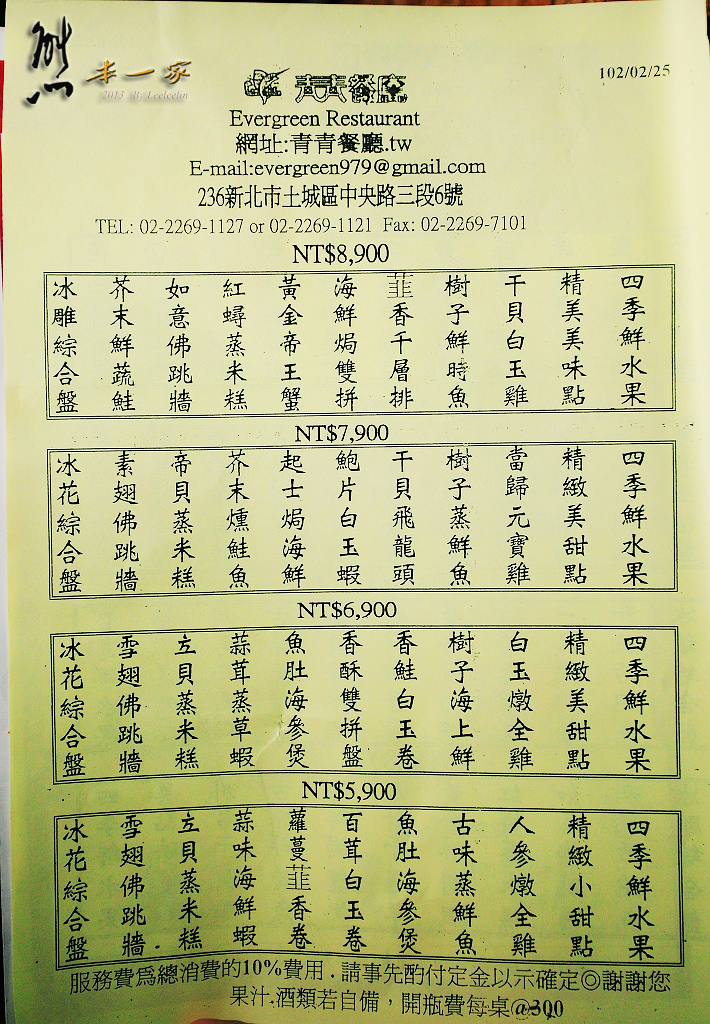 熊
本一家
2013 By Leeleelin
102/02/25
青青餐廳
Evergreen Restaurant
網址:青青餐廳.tw
E-mail:evergreen979@gmail.com
236新北市土城區中央路三段6號
TEL: 02-2269-1127 or 02-2269-1121 Fax: 02-2269-7101
NT$8,900
冰雕綜合盤
芥末鮮蔬鮭
如意佛跳牆
紅蟳蒸米糕
黃金帝王蟹
海鮮焗雙拼
韭香千層排
樹子鮮時魚
干貝白玉雞
精美美味點
四季鮮水果
NT$7,900
冰花綜合盤
素翅佛跳牆
帝貝蒸米糕
芥末燻鮭魚
起士焗海鮮
鮑片白玉蝦
干貝飛龍頭
樹子蒸鮮魚
當歸元寶雞
精緻美甜點
四季鮮水果
NT$6,900
冰花綜合盤
雪翅佛跳牆
立貝蒸米糕
蒜茸蒸草蝦
魚肚海參煲
香酥雙拼盤
香鮭白玉卷
樹子海上鮮
白玉燉全雞
精緻美甜點
四季鮮水果
NT$5,900
冰花綜合盤
雪翅佛跳牆.
立貝蒸米糕
蒜味海鮮蝦
蘿蔓韭香卷
百茸白玉卷
魚肚海參煲
古味蒸鮮魚
人參燉全雞
精緻小甜點
四季鮮水果
服務費為總消費的10%費用.請事先酌付定金以示確定◎謝謝您
果汁.酒類若自備，開瓶費每桌@300